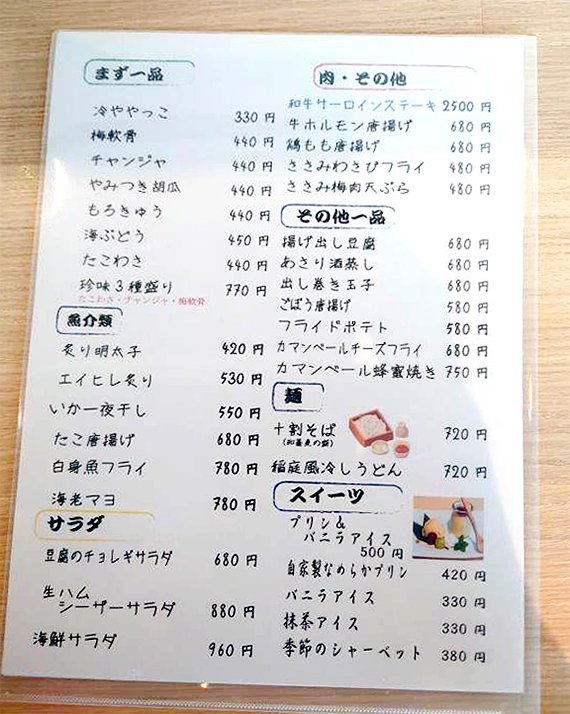 まず一品
冷ややっこ 330 円
梅軟骨 440 円
チャンジャ 440 円
やみつき胡瓜 440 円
もろきゅう 440 円
海ぶどう 450 円
たこわさ 440 円
珍味3種盛り 770 円
たこわさ・チャンジャ・梅軟骨
魚介類
炙り明太子 420 円
エイヒレ炙り 530 円
いか一夜干し 550 円
たこ唐揚げ 680 円
白身魚フライ 780 円
海老マヨ 780 円
サラダ
豆腐のチョレギサラダ 680 円
生ハム
シーザーサラダ 880 円
海鮮サラダ 960 円
肉・その他
和牛サーロインステーキ 2500 円
牛ホルモン唐揚げ 680 円
鶏もも唐揚げ 680 円
ささみわさびフライ 480 円
ささみ梅肉天ぷら 480 円
その他一品
揚げ出し豆腐 680 円
あさり酒蒸し 680 円
出し巻き玉子 680 円
ごぼう唐揚げ 580 円
フライドポテト 580 円
カマンベールチーズフライ 680 円
カマンベール蜂蜜焼き 750 円
麺
十割そば 720 円
稲庭風冷しうどん 720 円
スイーツ
プリン&
バニラアイス
500 円
自家製なめらかプリン 420 円
バニラアイス 330 円
抹茶アイス 330 円
季節のシャーベット 380 円